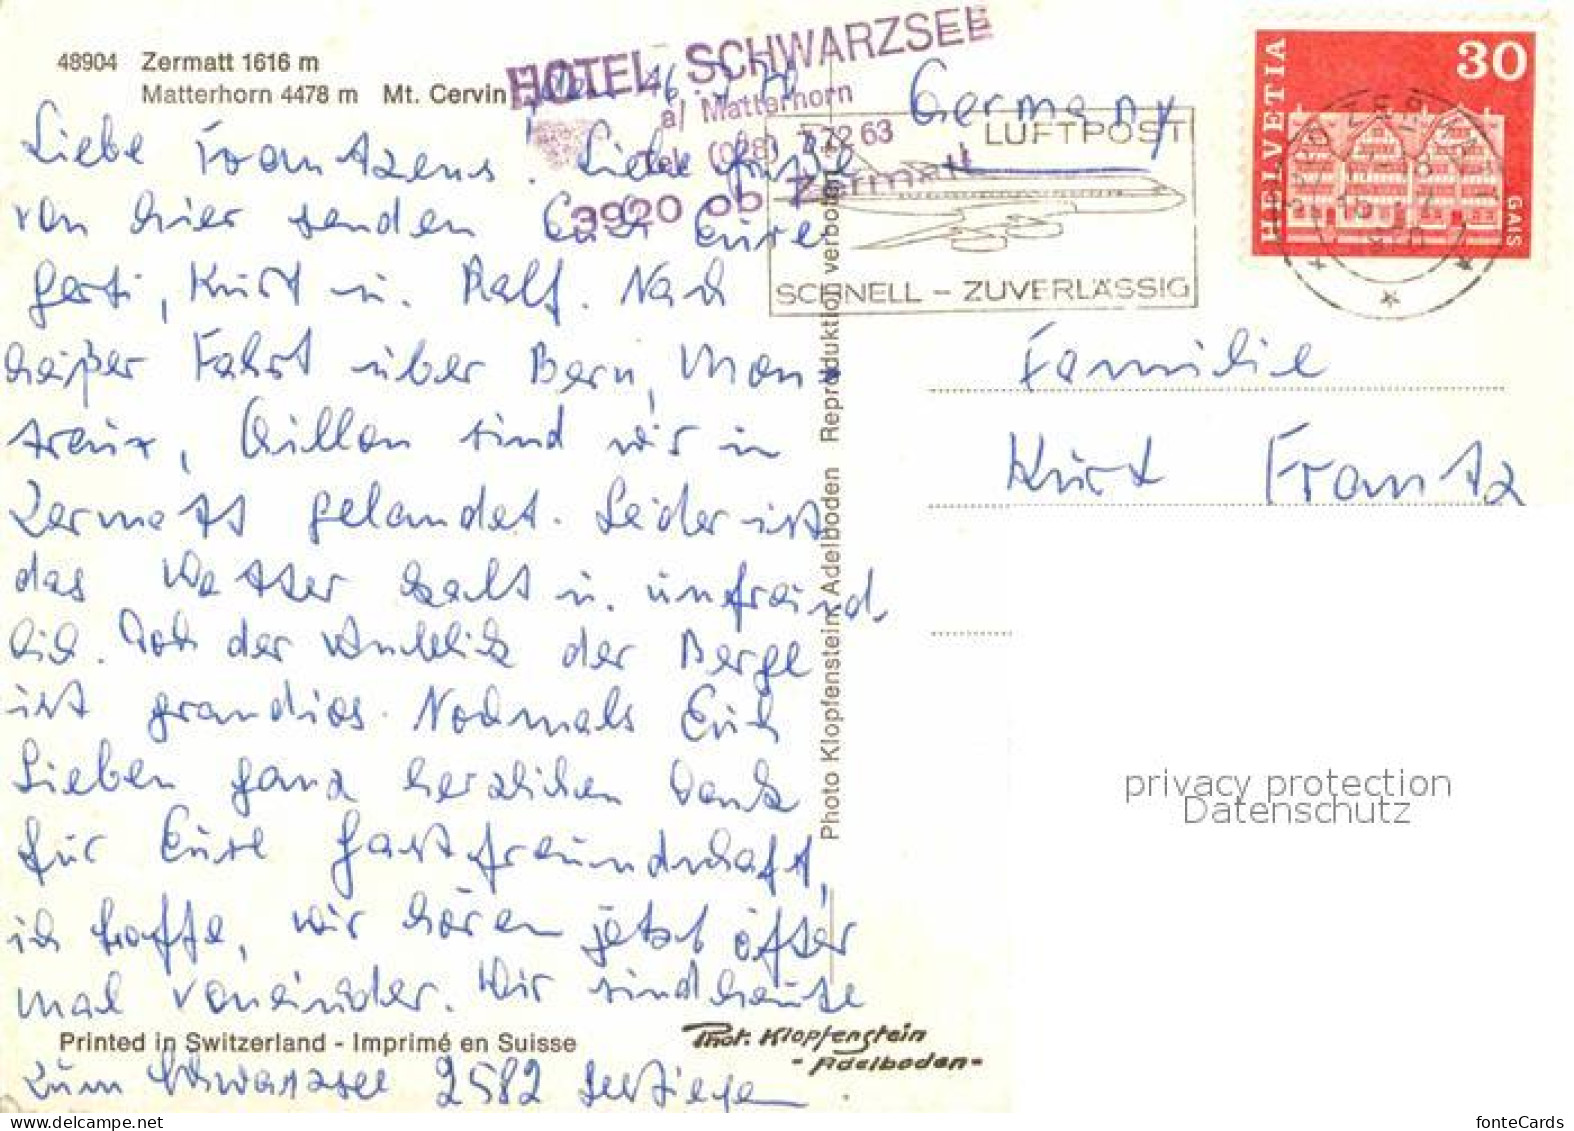 48904 Zermatt 1616 m
Matterhorn 4478 m Mt. Cervin
HOTEL SCHWARZSEE
a/ Matterhorn
Tel. (028) 7 72 63
3920 ob Zermatt
Liebe Frantzens! Liebe Grüße
von hier senden Euch Eure
Gerti, Kurt u. Ralf. Nach
heißer Fahrt über Bern, Mon-
treux, Chillon sind wir in
Zermatt gelandet. Leider ist
das Wetter kalt u. unfreund-
lich. Doch der Anblick der Berge
ist grandios. Nochmals Euch
Lieben ganz herzlichen Dank
für Eure Gastfreundschaft,
ich hoffe, wir hören jetzt öfter
mal voneinander. Wir sind heute
Printed in Switzerland - Imprimé en Suisse
zum Schwarzsee 2582 gestiegen.
Phot. Klopfenstein
- Adelboden -
Photo Klopfenstein, Adelboden Reproduktion verboten
Germany
LUFTPOST
SCHNELL - ZUVERLÄSSIG
HELVETIA
30
GAIS
Familie
Kurt Frantz
privacy protection
Datenschutz
fonteCards